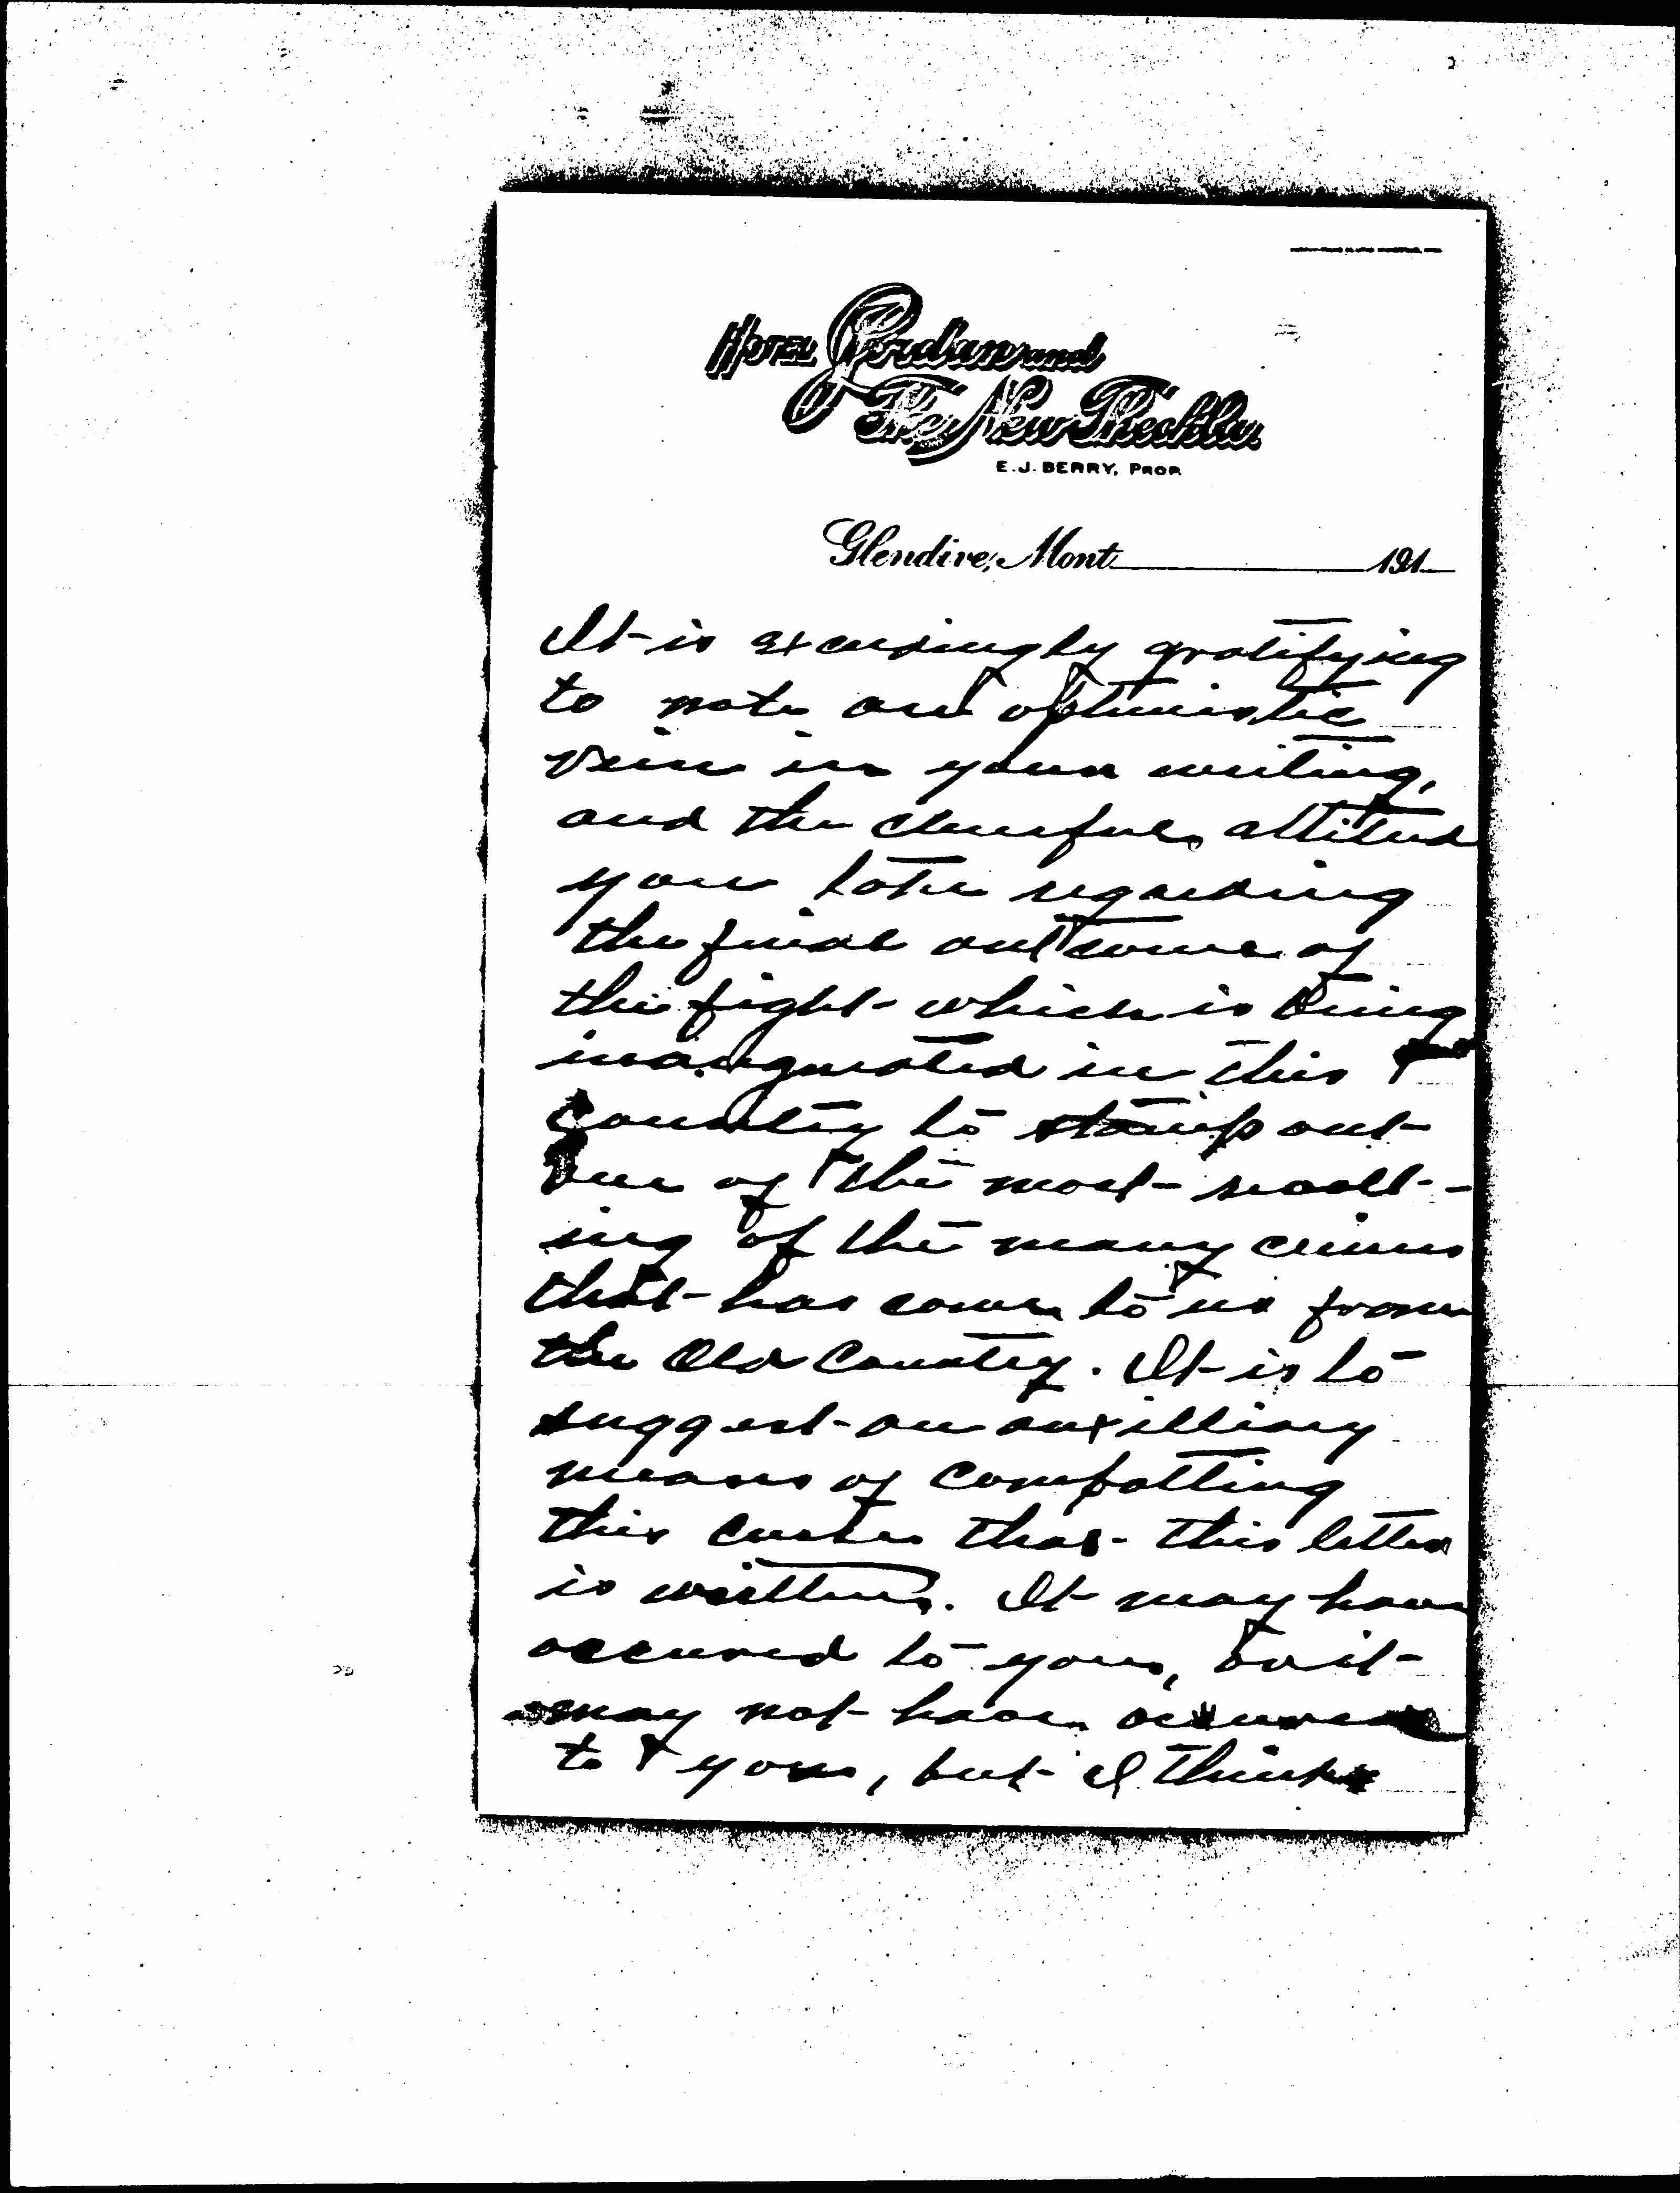 HOTEL Jordan and
The New Theckla
E. J. BERRY, PROP.
Glendive, Mont 191
It is exceedingly gratifying
to note an optimistic
vein in your writing,
and the cheerful attitude
you take regarding
the final outcome of
the fight which is being
inaugurated in this
country to stamp out
one of the most revolt-
ing of the many crimes
that has come to us from
the Old Country. It is to
suggest an auxilliary
means of combatting
this that this letter
is written. It may have
occured to you, or it
may not have occured
to you, but I think